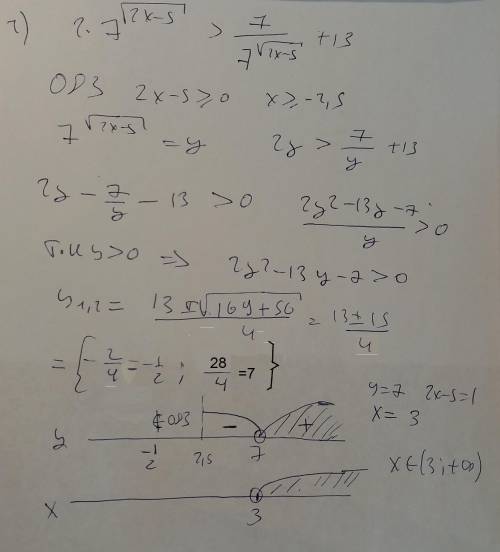 г) 2·7^√(2x-5) > 7/7^√(2x-5) + 13
ОДЗ 2x-5≥0 x≥-2,5
7^√(2x-5) = y 2y > 7/y + 13
2y - 7/y - 13 > 0 (2y²-13y-7)/y > 0
т.к y>0 => 2y²-13y-7>0
y₁,₂ = (13±√(169+56))/4 = (13±15)/4
= { -2/4 = -1/2 ; 28/4 =7 }
y=7 2x-5=1
x= 3
∉ ОДЗ - +
y -1/2 2,5 7
x∈(3;+∞)
x 3